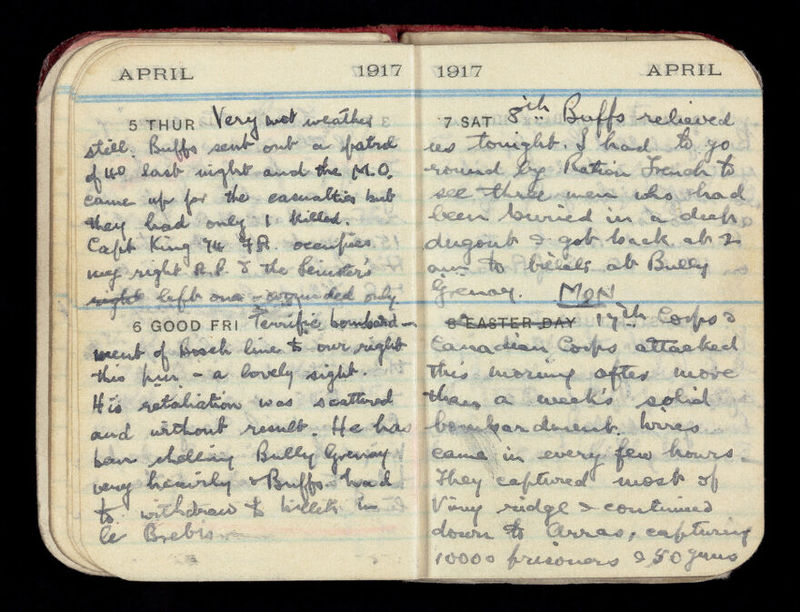 APRIL 1917
5 THUR Very wet weather
still. Buffs sent out a patrol
of 40 last night and the M.O.
came up for the casualties but
they had only 1 killed.
Capt King 74 F.A. occupies
my right A.P. & the Leinster's
right left one - wounded only
6 GOOD FRI Terrific bombard-
ment of Bosch line to our right
this - a lovely sight.
His retaliation was scattered
and without result. He has
been shelling Bully Grenay
very heavily & Buffs had
to withdraw to billets in
le Brebis
1917 APRIL
7 SAT 8th Buffs relieved
us tonight. I had to go
round by Ration Trench to
see three men who had
been buried in a deep
dugout & got back at 2
am to billets at Bully
Grenay. MON
8 EASTER DAY 17th Corps &
Canadian Corps attacked
this morning after more
than a week's solid
bombardment. Wires
came in every few hours
They captured most of
Vimy ridge & continued
down to Arras, capturing
10000 prisoners & 50 guns